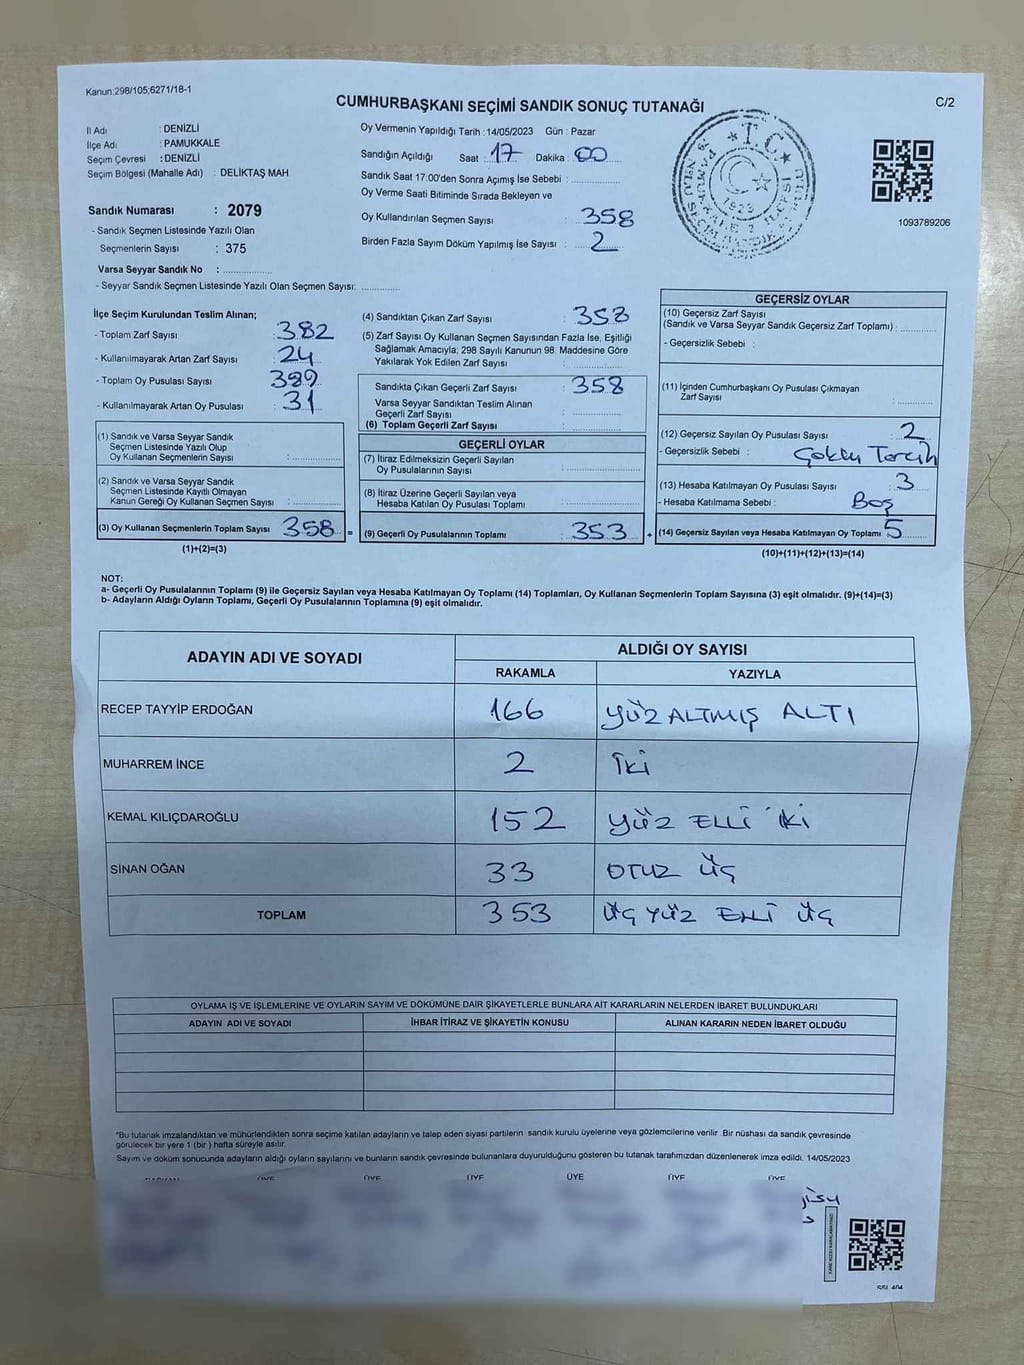 Kanun:298/105;6271/18-1
CUMHURBAŞKANI SEÇİMİ SANDIK SONUÇ TUTANAĞI
C/2
İl Adı : DENİZLİ
İlçe Adı : PAMUKKALE
Seçim Çevresi : DENİZLİ
Seçim Bölgesi (Mahalle Adı) : DELİKTAŞ MAH.
Sandık Numarası : 2079
- Sandık Seçmen Listesinde Yazılı Olan
Seçmenlerin Sayısı : 375
Varsa Seyyar Sandık No :
- Seyyar Sandık Seçmen Listesinde Yazılı Olan Seçmen Sayısı:
Oy Vermenin Yapıldığı Tarih : 14/05/2023 Gün : Pazar
Sandığın Açıldığı Saat : 17 Dakika : 00
Sandık Saat 17:00'den Sonra Açımış İse Sebebi :
Oy Verme Saati Bitiminde Sırada Bekleyen ve
Oy Kullandırılan Seçmen Sayısı : 358
Birden Fazla Sayım Döküm Yapılmış İse Sayısı : 2
T.C.
1923
1093789206
İlçe Seçim Kurulundan Teslim Alınan;
- Toplam Zarf Sayısı : 382
- Kullanılmayarak Artan Zarf Sayısı : 24
- Toplam Oy Pusulası Sayısı : 389
- Kullanılmayarak Artan Oy Pusulası : 31
(1) Sandık ve Varsa Seyyar Sandık
Seçmen Listesinde Yazılı Olup
Oy Kullanan Seçmenlerin Sayısı :
(2) Sandık ve Varsa Seyyar Sandık
Seçmen Listesinde Kayıtlı Olmayan
Kanun Gereği Oy Kullanan Seçmen Sayısı :
(3) Oy Kullanan Seçmenlerin Toplam Sayısı 358 =
(1)+(2)=(3)
(4) Sandıktan Çıkan Zarf Sayısı : 358
(5) Zarf Sayısı Oy Kullanan Seçmen Sayısından Fazla İse, Eşitliği
Sağlamak Amacıyla; 298 Sayılı Kanunun 98. Maddesine Göre
Yakılarak Yok Edilen Zarf Sayısı :
Sandıkta Çıkan Geçerli Zarf Sayısı : 358
Varsa Seyyar Sandıktan Teslim Alınan
Geçerli Zarf Sayısı :
(6) Toplam Geçerli Zarf Sayısı :
GEÇERLİ OYLAR
(7) İtiraz Edilmeksizin Geçerli Sayılan
Oy Pusulalarının Sayısı :
(8) İtiraz Üzerine Geçerli Sayılan veya
Hesaba Katılan Oy Pusulası Toplamı :
(9) Geçerli Oy Pusulalarının Toplamı : 353 +
GEÇERSİZ OYLAR
(10) Geçersiz Zarf Sayısı
(Sandık ve Varsa Seyyar Sandık Geçersiz Zarf Toplamı) :
- Geçersizlik Sebebi :
(11) İçinden Cumhurbaşkanı Oy Pusulası Çıkmayan
Zarf Sayısı :
(12) Geçersiz Sayılan Oy Pusulası Sayısı : 2
- Geçersizlik Sebebi : Çoklu Tercih
(13) Hesaba Katılmayan Oy Pusulası Sayısı : 3
- Hesaba Katılmama Sebebi : Boş
(14) Geçersiz Sayılan veya Hesaba Katılmayan Oy Toplamı : 5
(10)+(11)+(12)+(13)=(14)
NOT:
a- Geçerli Oy Pusulalarının Toplamı (9) ile Geçersiz Sayılan veya Hesaba Katılmayan Oy Toplamı (14) Toplamları, Oy Kullanan Seçmenlerin Toplam Sayısına (3) eşit olmalıdır. (9)+(14)=(3)
b- Adayların Aldığı Oyların Toplamı, Geçerli Oy Pusulalarının Toplamına (9) eşit olmalıdır.
ADAYIN ADI VE SOYADI ALDIĞI OY SAYISI
RAKAMLA YAZIYLA
RECEP TAYYİP ERDOĞAN 166 YÜZ ALTMIŞ ALTI
MUHARREM İNCE 2 İKİ
KEMAL KILIÇDAROĞLU 152 YÜZ ELLİ İKİ
SİNAN OĞAN 33 OTUZ ÜÇ
TOPLAM 353 ÜÇ YÜZ ELLİ ÜÇ
OYLAMA İŞ VE İŞLEMLERİNE VE OYLARIN SAYIM VE DÖKÜMÜNE DAİR ŞİKAYETLERLE BUNLARA AİT KARARLARIN NELERDEN İBARET BULUNDUKLARI
ADAYIN ADI VE SOYADI İHBAR İTİRAZ VE ŞİKAYETİN KONUSU ALINAN KARARIN NEDEN İBARET OLDUĞU
*Bu tutanak imzalandıktan ve mühürlendikten sonra seçime katılan adayların ve talep eden siyasi partilerin sandık kurulu üyelerine veya gözlemcilerine verilir .Bir nüshası da sandık çevresinde
görülecek bir yere 1 (bir ) hafta süreyle asılır.
Sayım ve döküm sonucunda adayların aldığı oyların sayılarını ve bunların sandık çevresinde bulunanlara duyurulduğunu gösteren bu tutanak tarafımızdan düzenlenerek imza edildi. 14/05/2023
BAŞKAN ÜYE ÜYE ÜYE ÜYE ÜYE ÜYE